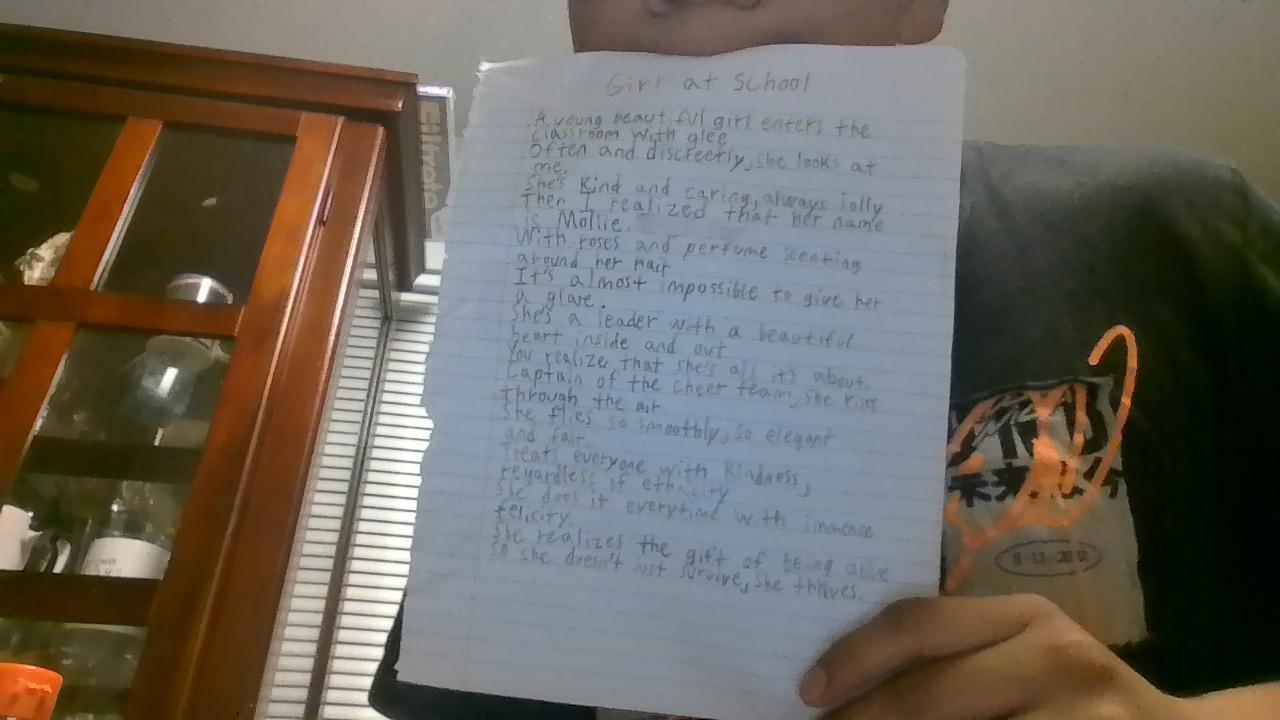 Girl at School
A young beautiful girl enters the
classroom with glee
Often and discreetly, she looks at
me.
She's kind and caring, always jolly
Then I realized that her name
is Mollie.
With roses and perfume scenting
around her hair
It's almost impossible to give her
a glare.
She's a leader with a beautiful
heart inside and out
You realize that she's all it's about.
Captain of the cheer team, she rises
through the air
She flies so smoothly, so elegant
and fair.
Treats everyone with kindness,
regardless of ethnicity
She does it everytime with immense
felicity.
She realizes the gift of being alive
So she doesn't just survive, she thrives.
Filtrete
未来